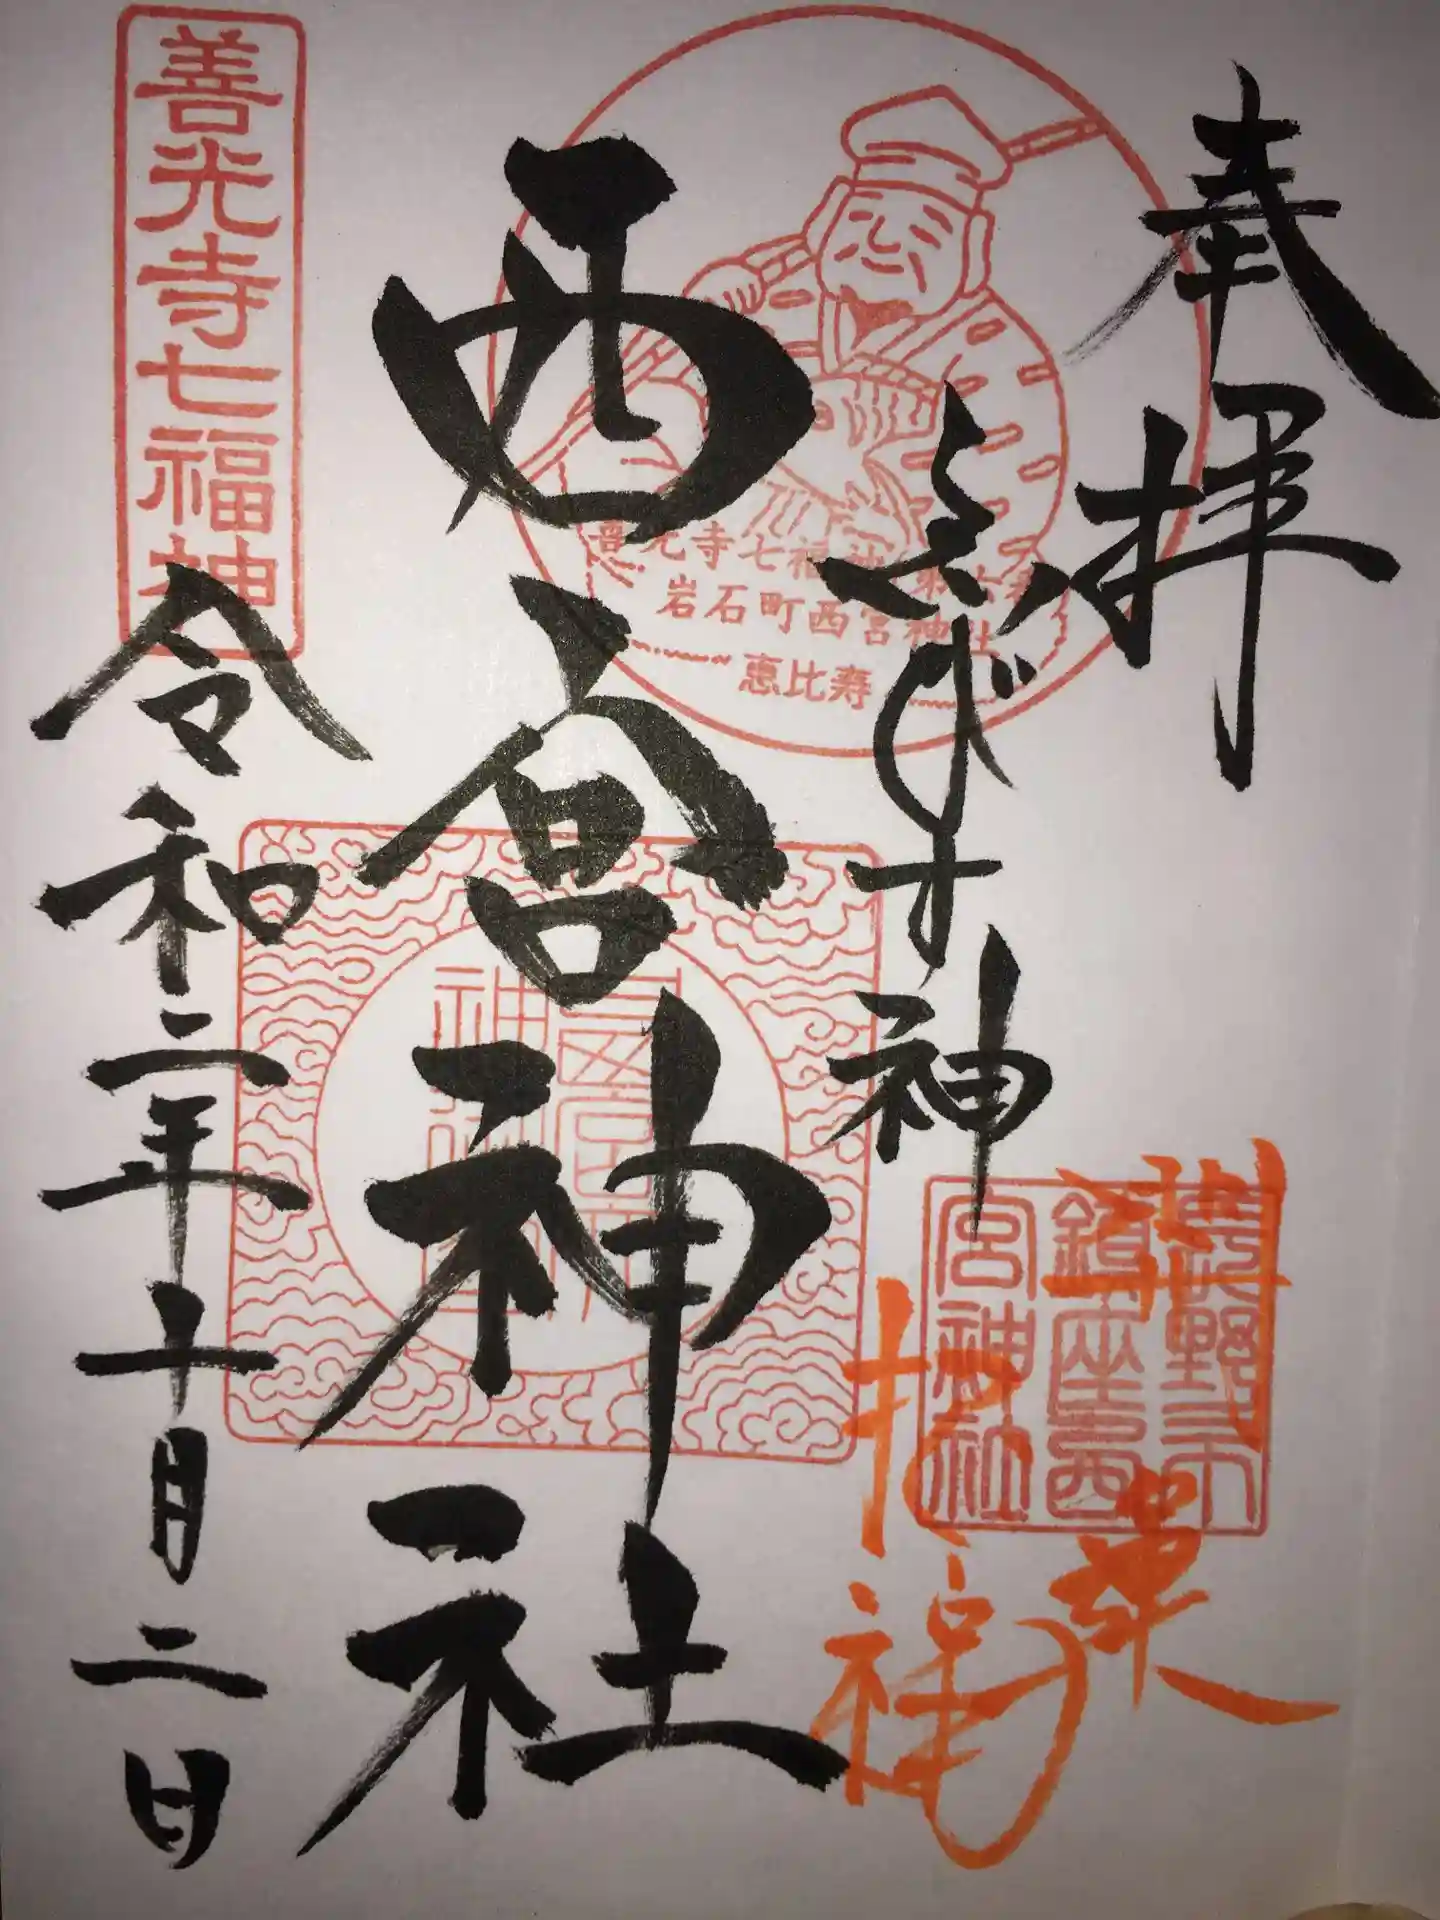 奉拝
ゑびす神
西宮神社
令和二年十月二日
善光寺七福神
善光寺七福神
岩石町西宮神社
恵比寿
長野市
鎮座西
宮神社
招福